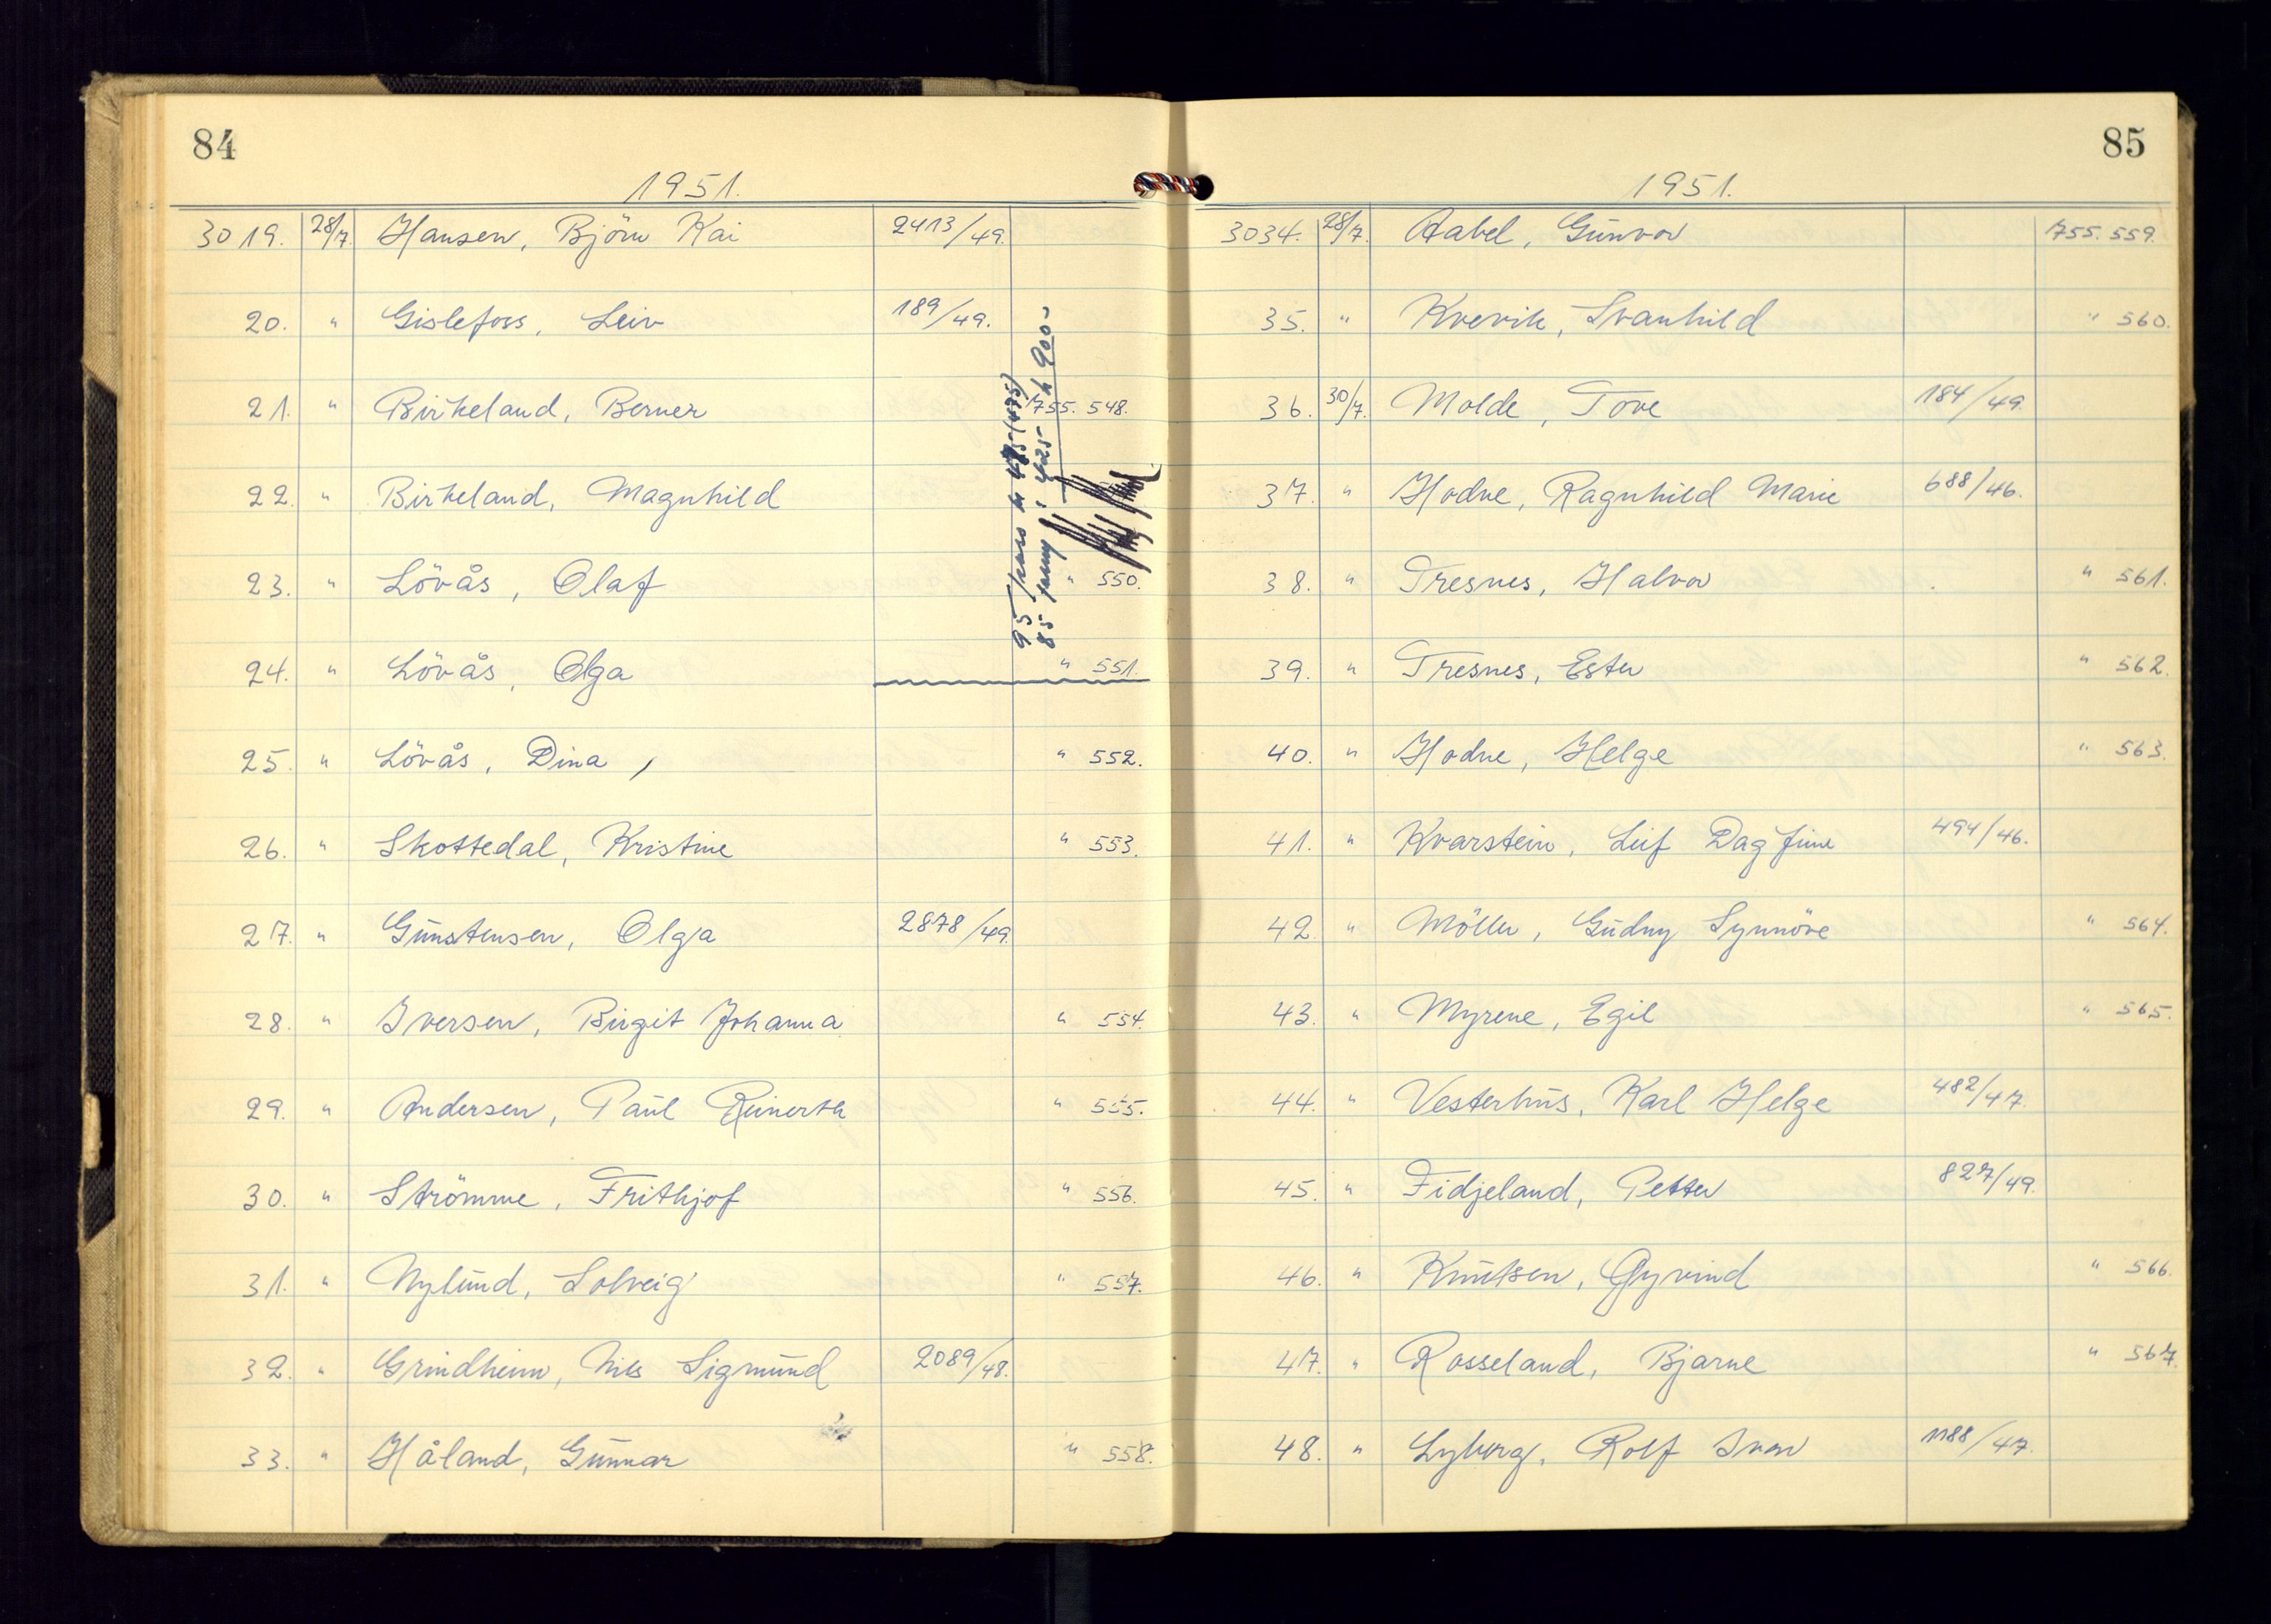 84
1951.
3019. 28/7. Hansen, Björn Kai 2413/49.
20. " Gislefoss, Leiv 189/49.
21. " Birkeland, Berner 1755. 548.
22. " Birkeland, Magnhild
23. " Lövås, Olaf " 550.
24. " Lövås, Olga " 551.
25. " Lövås, Dina, " 552.
26. " Skottedal, Kristine " 553.
27. " Gunstensen, Olga 2878/49.
28. " Iversen, Birgit Johanna " 554.
29. " Andersen, Paul Reinerth " 555.
30. " Strömme, Frithjof " 556.
31. " Nylund, Solveig " 557.
32. " Grindheim, Nils Sigmund 2089/48.
33. " Håland, Gunnar " 558.
85
1951.
3034. 28/7. Aabel, Gunvor 1755. 559.
35. " Kvevik, Svanhild " 560.
36. 30/7. Molde, Tove 184/49.
37. " Hodne, Ragnhild Marie 688/46.
38. " Tresnes, Halvor " 561.
39. " Tresnes, Ester " 562.
40. " Hodne, Helge " 563.
41. " Kvarstein, Leif Dagfinn 494/46.
42. " Möller, Gudny Synnöve " 564.
43. " Myrene, Egil " 565.
44. " Vesterhus, Karl Helge 482/47.
45. " Fidjeland, Petter 827/49.
46. " Knutsen, Øyvind " 566.
47. " Rosseland, Bjarne " 567.
48. " Lyberg, Rolf Ivar 1188/47.